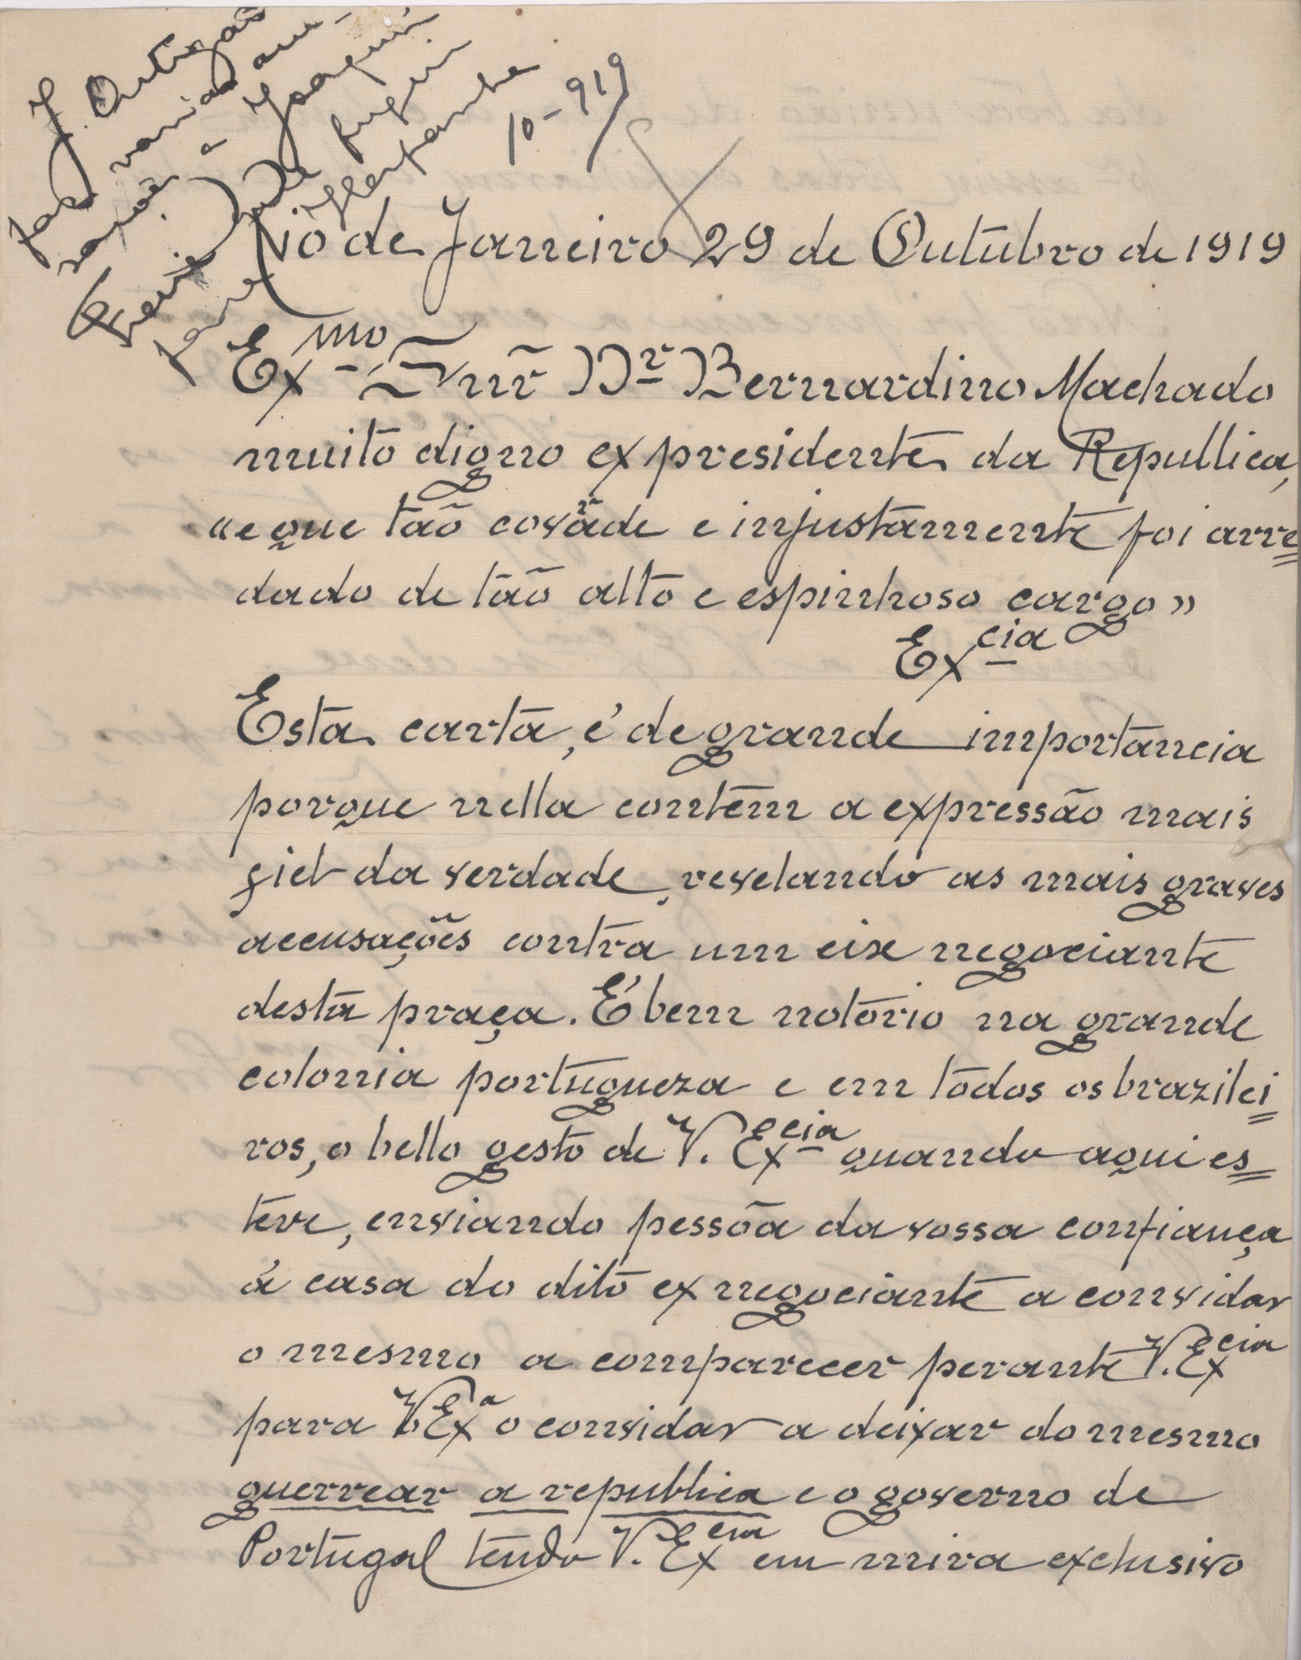 J. Ortigão
faz varias accu-
sações a Joaquim
Freire
10-919
Rio de Janeiro 29 de Outubro de 1919
Exmo Snr Dr Bernardino Machado
muito digno ex presidente da Repullica,
«e que tão covarde e injustamente foi arre=
dado de tão alto e espinhoso cargo»
Excia
Esta carta, é de grande importancia
porque nella contêm a expressão mais
fiel da verdade, revelando as mais graves
accusações contra um eix negociante
desta praça. É bem notório na grande
colonia portugueza e em todos os brazilei=
ros, o bello gesto de V. Excia quando aqui es=
teve, enviando pessôa da vossa confiança
á casa do dito ex negociante a convidar
o mesmo a comparecer perante V. Excia
para V Exa o convidar a deixar do mesmo
guerrear a republica e o governo de
Portugal tendo V. Excia em mira exclusivo